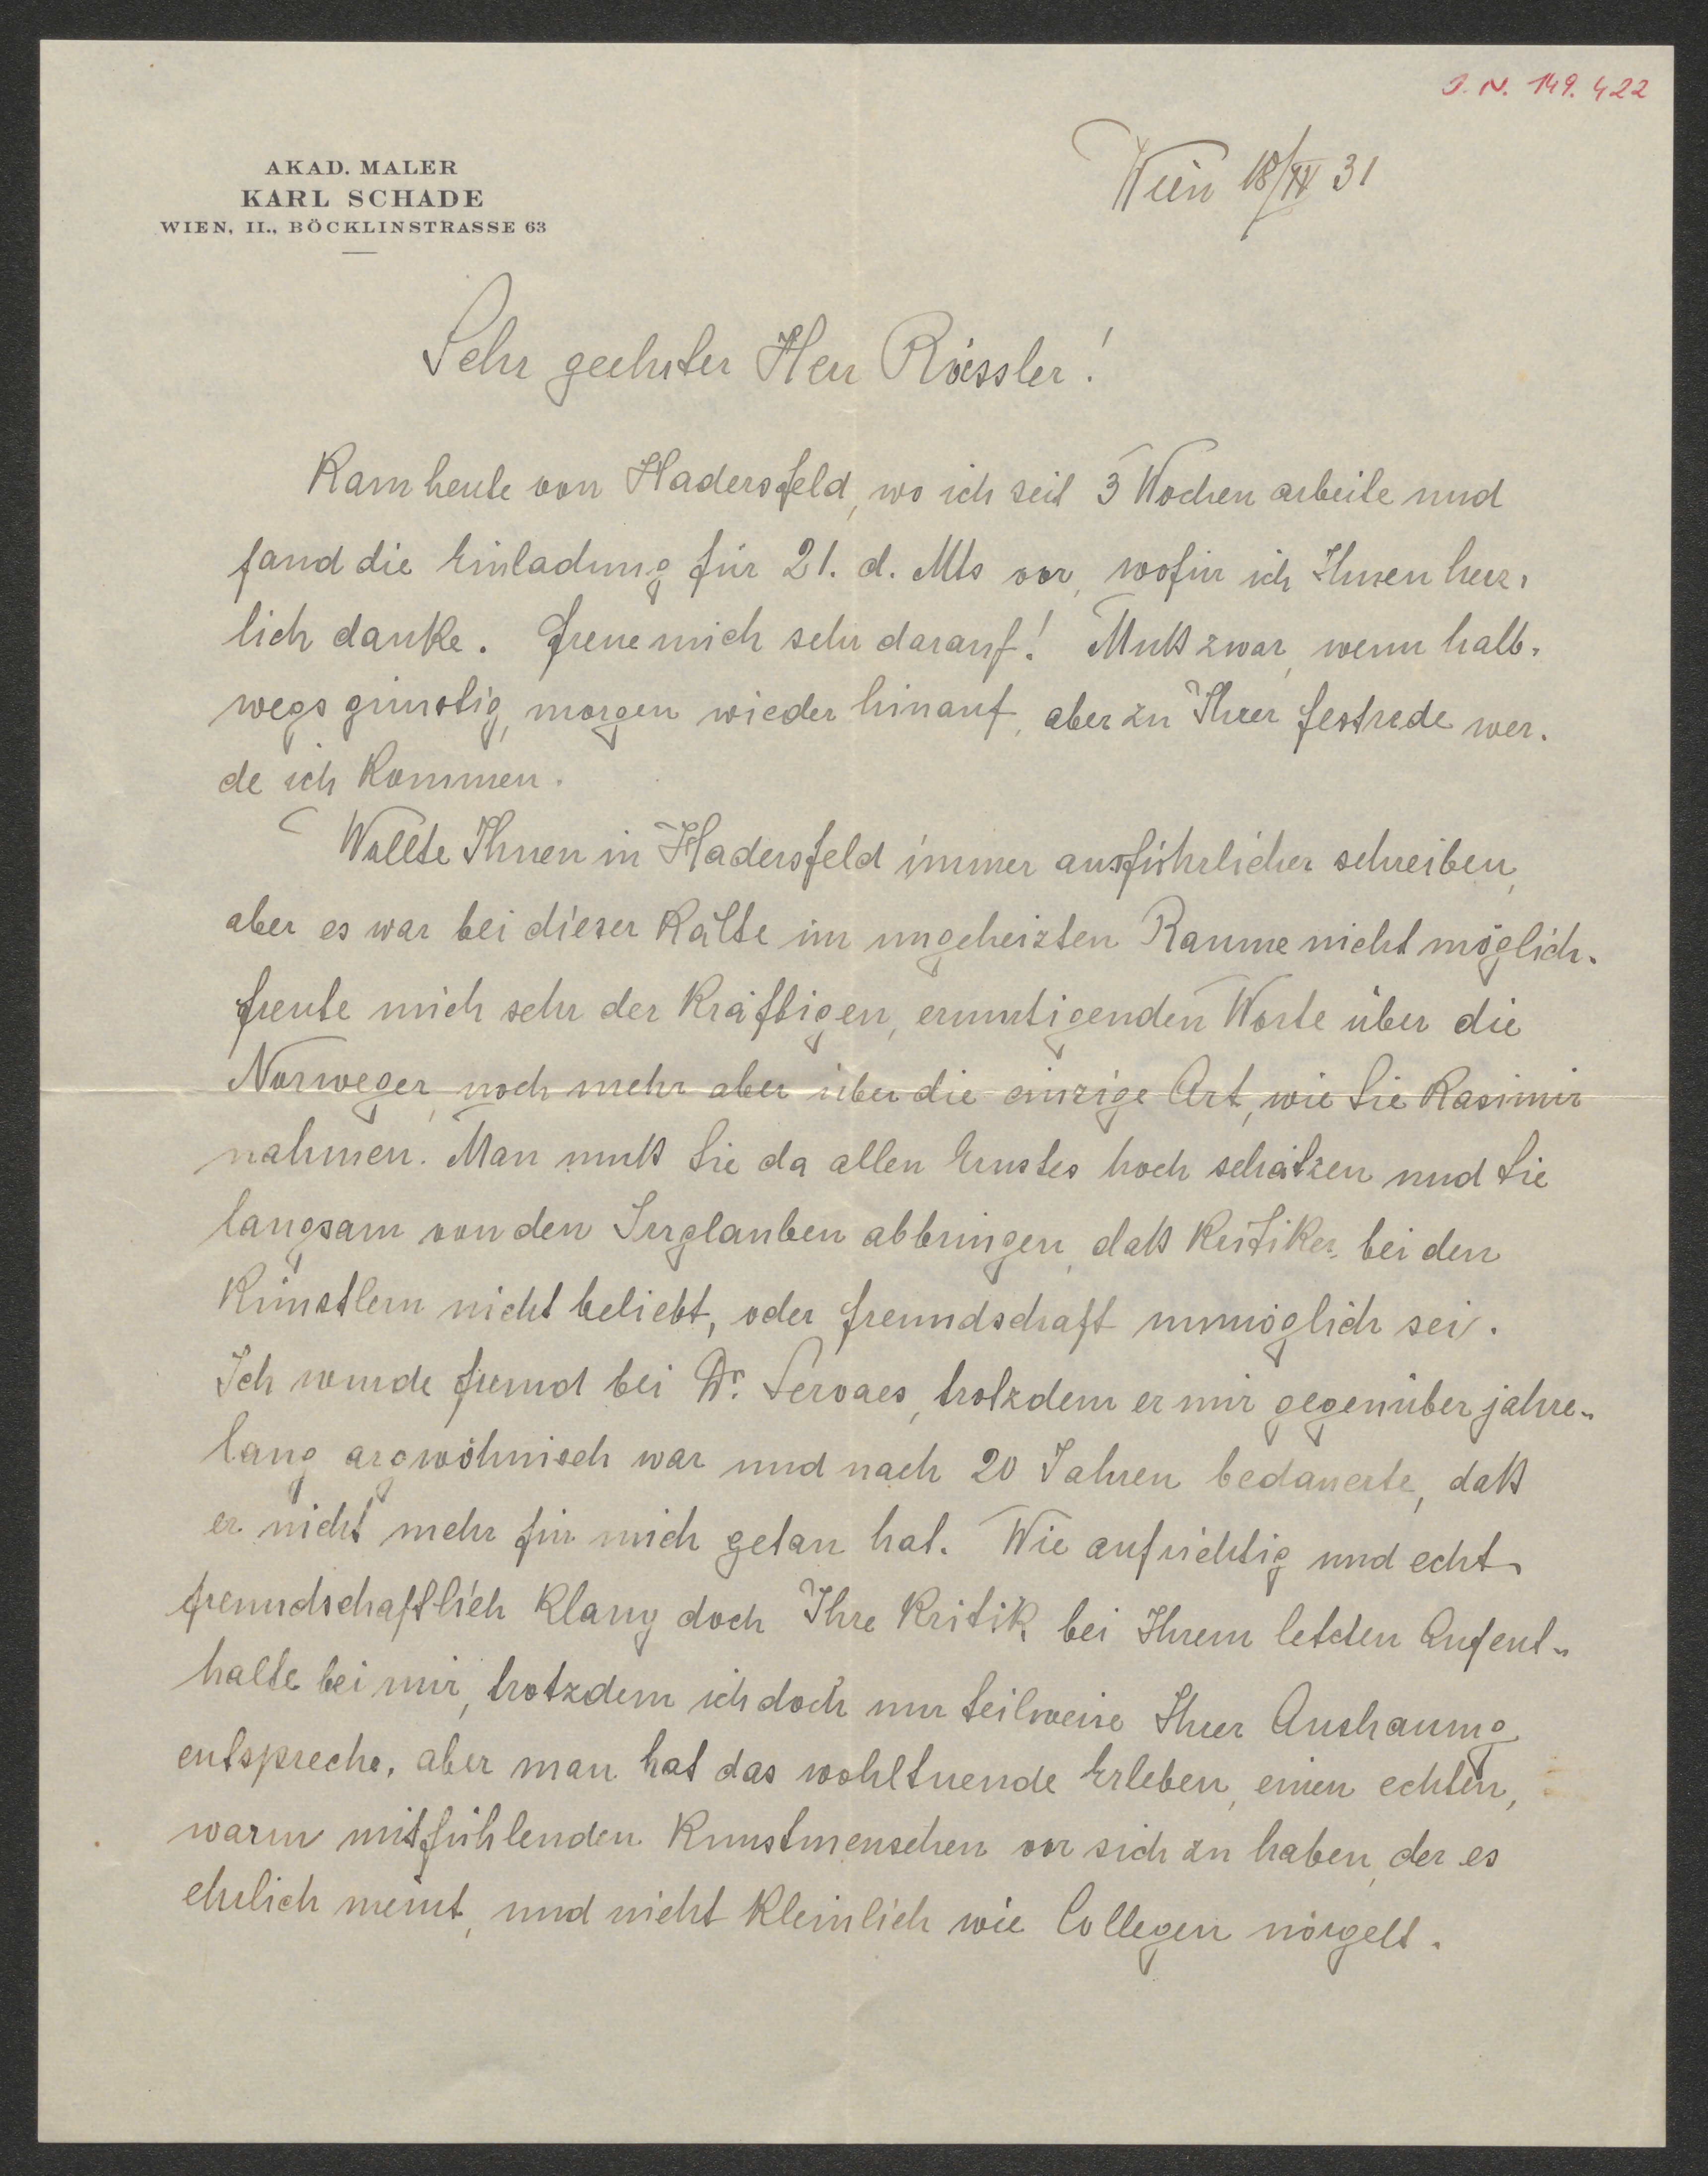 J. N. 149.422
AKAD. MALER
KARL SCHADE
WIEN, II., BÖCKLINSTRASSE 63
Wien 18/IV 31
Sehr geehrter Herr Röessler!
Kam heute von Hadersfeld, wo ich seit 3 Wochen arbeite und
fand die Einladung für 21. d. Mts vor, wofür ich Ihnen herz-
lich danke. Freue mich sehr darauf! Muß zwar, wenn halb-
wegs günstig, morgen wieder hinauf, aber zu Ihrer Festrede wer-
de ich kommen.
Wollte Ihnen in Hadersfeld immer ausführlicher schreiben,
aber es war bei dieser Kälte im ungeheizten Raume nicht möglich.
Freute mich sehr der kräftigen, ermutigenden Worte über die
Norweger, noch mehr aber über die einzige Art, wie Sie Kasimir
nahmen. Man muß Sie da allen Ernstes hoch schätzen und Sie
langsam von den Irrglauben abbringen, daß Kritiker bei den
Künstlern nicht beliebt, oder Freundschaft unmöglich sei.
Ich wurde fremd bei Dr. Servaes, trotzdem er mir gegenüber jahre-
lang argwöhnisch war und nach 20 Jahren bedauerte, daß
er nicht mehr für mich getan hat. Wie aufrichtig und echt
freundschaftlich klang doch Ihre Kritik bei Ihrem letzten Aufent-
halte bei mir, trotzdem ich doch nur teilweise Ihrer Anshauung
entspreche, aber man hat das wohltuende Erleben, einen echten,
warm mitfühlenden Kunstmenschen vor sich zu haben, der es
ehrlich meint, und nicht kleinlich wie Collegen nörgelt.